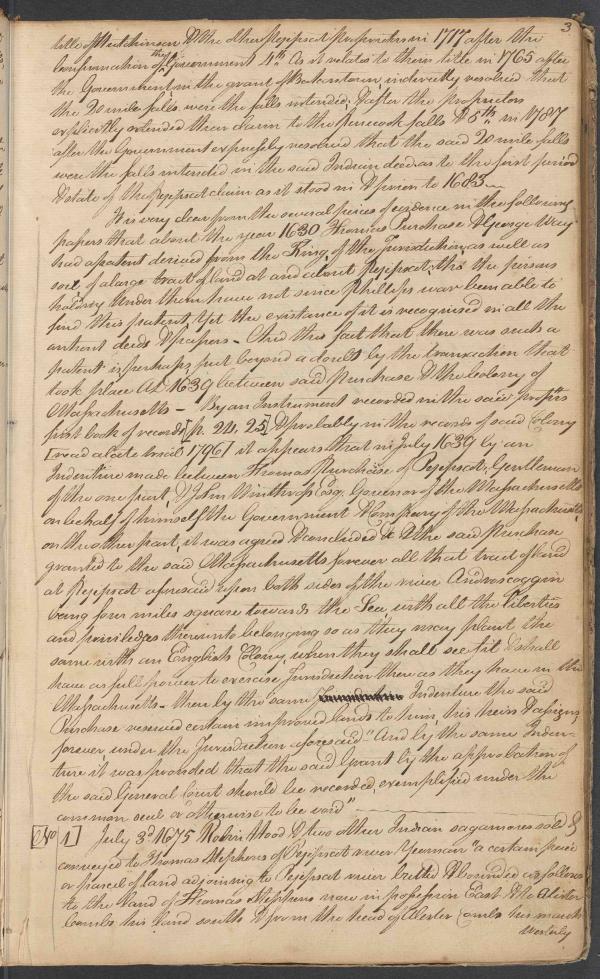 3
title of Hutchinson & the other Pejepscot Proprietors in 1717 after the
confirmation of the Government 4th As it relates to their title in 1765 after
the Government in the grant of Bakerstown indirectly resolved that
the 20 mile falls were the falls intended, & after the proprietors
explicitly extended their claim to the falls & 5th in 1787
after the Government expressly resolved that the said 20 mile falls
were the falls intended in the said Indian deed as to the first period
& state of the Pejepscot claim as it stood in & prior to 1683 —
It is very clear from the several pieces of evidence in the following
papers that about the year 1630 Thomas Purchase & George Way
had a patent derived from the King, of the Jurisdiction as well as
soil of a large tract of land at and about Pejepscot; tho the persons
holding under them have not since Phillips's war been able to
find this patent, Yet the existance of it is recognised in all the
antient deeds & papers — And the fact that there was such a
patent is perhaps put beyond a doubt by the transaction that
took place AD 1639 between said Purchase & the Colony of
Massachusetts — By an Instrument recorded in the said propters
first book of records [p. 24, 25] & probably in the records of said Colony
[read a late trial 1796] it appears that in July 1639 by an
Indenture made between Thomas Purchase of Pejepscot, Gentleman
of the one part, & John Winthrop Esq. Governor of the Massachusetts
on behalf of himself the Government & Company of the Massachusetts,
on the other part, it was agreed & concluded &c & the said Purchase
granted to the said Massachusetts forever all that tract of land
at Pejepscot aforesaid upon both sides of the river Androscoggin
being four miles square towards the Sea with all the liberties
and priviledges thereunto belonging so as they may plant the
same with an English Colony, when they shall see fit & shall
have as full power to exercise Jurisdiction there as they have in the
Massachusetts — then by the same Indenture the said
Purchase reserved certain improved lands to him, his heirs & assigns,
forever, under the Jurisdiction aforesaid" And by the same Inden-
ture it was provided that the said Grant by the approbation of
the said General Court should be recorded, exemplified under the
common seal or otherwise to be void"
[No 1] July 3d 1675 Robin Hood & two other Indian sagamores sold &
conveyed to Thomas Stephens of Pejepscot river Yeoman "a certain piece
or parcel of land adjoining to Pejepscot river butted & bounded as follows
to the land of Thomas Stephens now in possession East & to Alister
Combs his land south & from the head of Alister Combs his marsh
Westerly